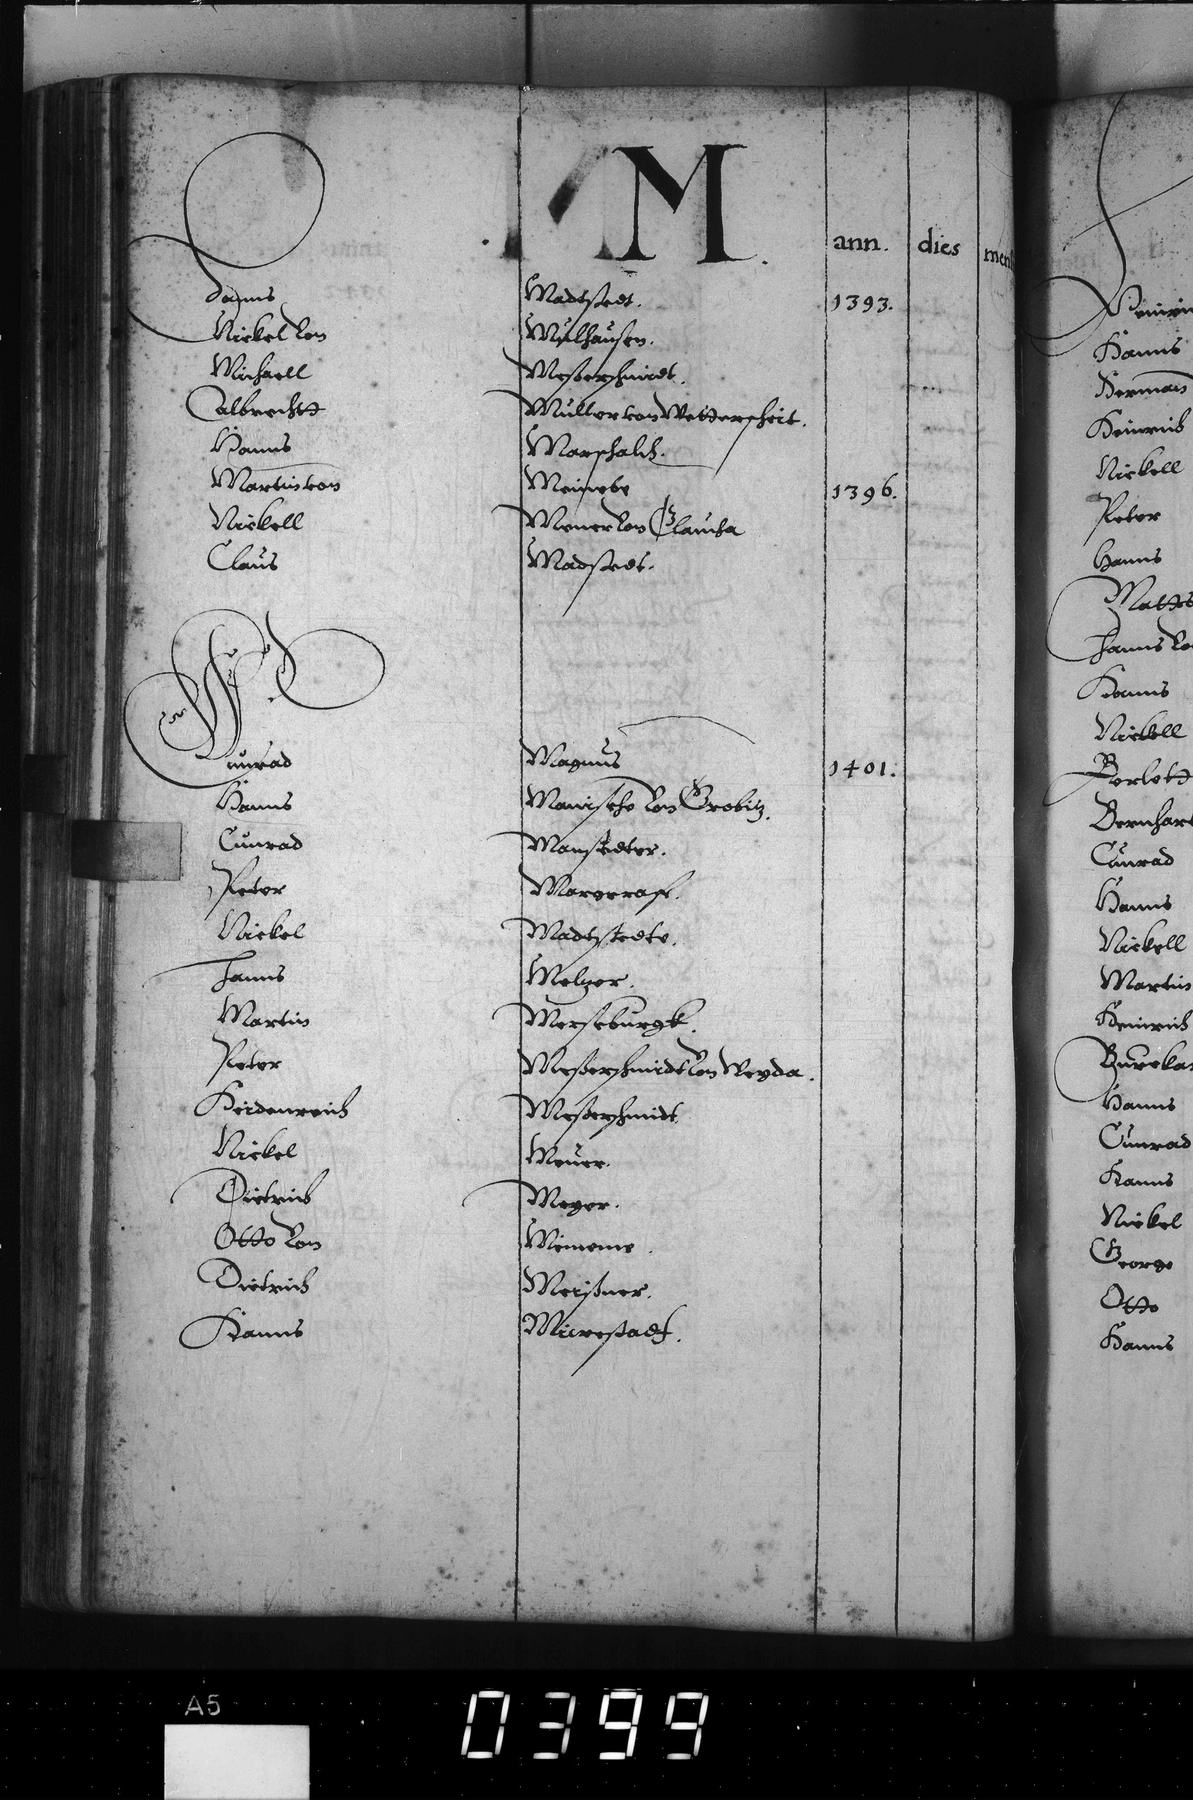 M.
ann. dies mens
Hanns Madtstedt. 1393.
Nickel von Mülhausen.
Michaell Meßerschmidt.
Albrechtt Müller von Wetterscheit.
Hanns Marschalch.
Martin von Meinebe 1396.
Nickell Meuer von Glaucha
Claus Madstedt.
Cunrad Magnus 1401.
Hanns Manische von Grobitz.
Cunrad Manstedter.
Peter Margeraff.
Nickel Madtstedte.
Hanns Melzer.
Martin Merseburgk.
Peter Meßerschmidt von Weyda.
Heidenreich Meßerschmidt
Nickel Meuer.
Dietrich Meyer.
Otto von Mimeme.
Dietrich Meißner.
Hanns
Hanns
Herman
Heinrich
Nickell
Peter
Hanns
Mattes
Hanns von
Hanns
Nickell
Bernhart
Cunrad
Hanns
Nickell
Martin
Heinrich
Hanns
Cunrad
Hanns
Nickel
George
Otto
Hanns
A5
0399